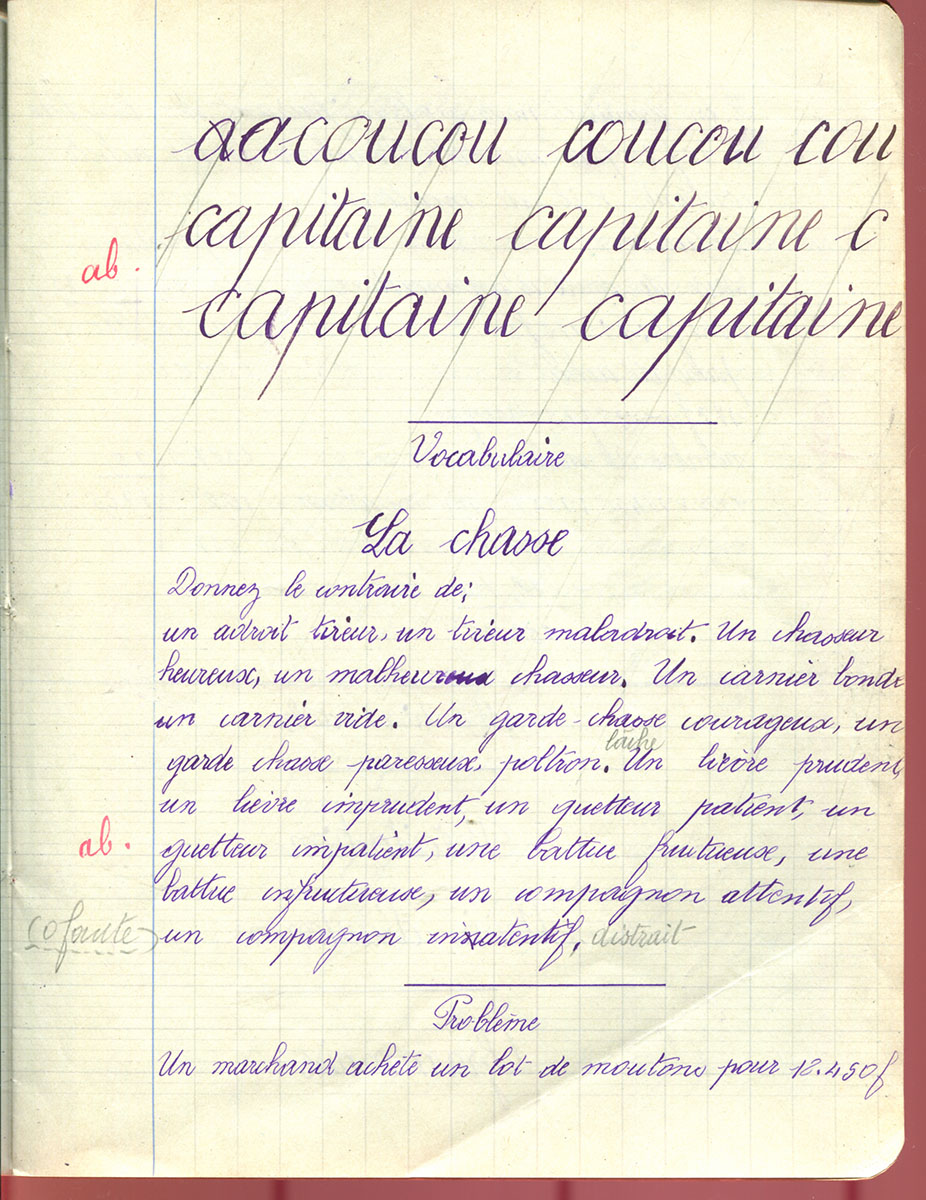 aacoucou coucou cou
capitaine capitaine c
ab.
capitaine capitaine
Vocabulaire
La chasse
Donnez le contraire de;
un adroit tireur, un tireur maladroit. Un chasseur
heureux, un malheureux chasseur. Un carnier bondé
un carnier vide. Un garde-chasse courageux, un
lâche
garde chasse paresseux, poltron. Un lièvre prudent,
un lièvre imprudent, un guetteur patient, un
ab.
guetteur impatient, une battue fructueuse, une
battue infructueuse, un compagnon attentif,
co faute un compagnon inatentif, distrait
Problème
Un marchand achète un lot de moutons pour 18.450f